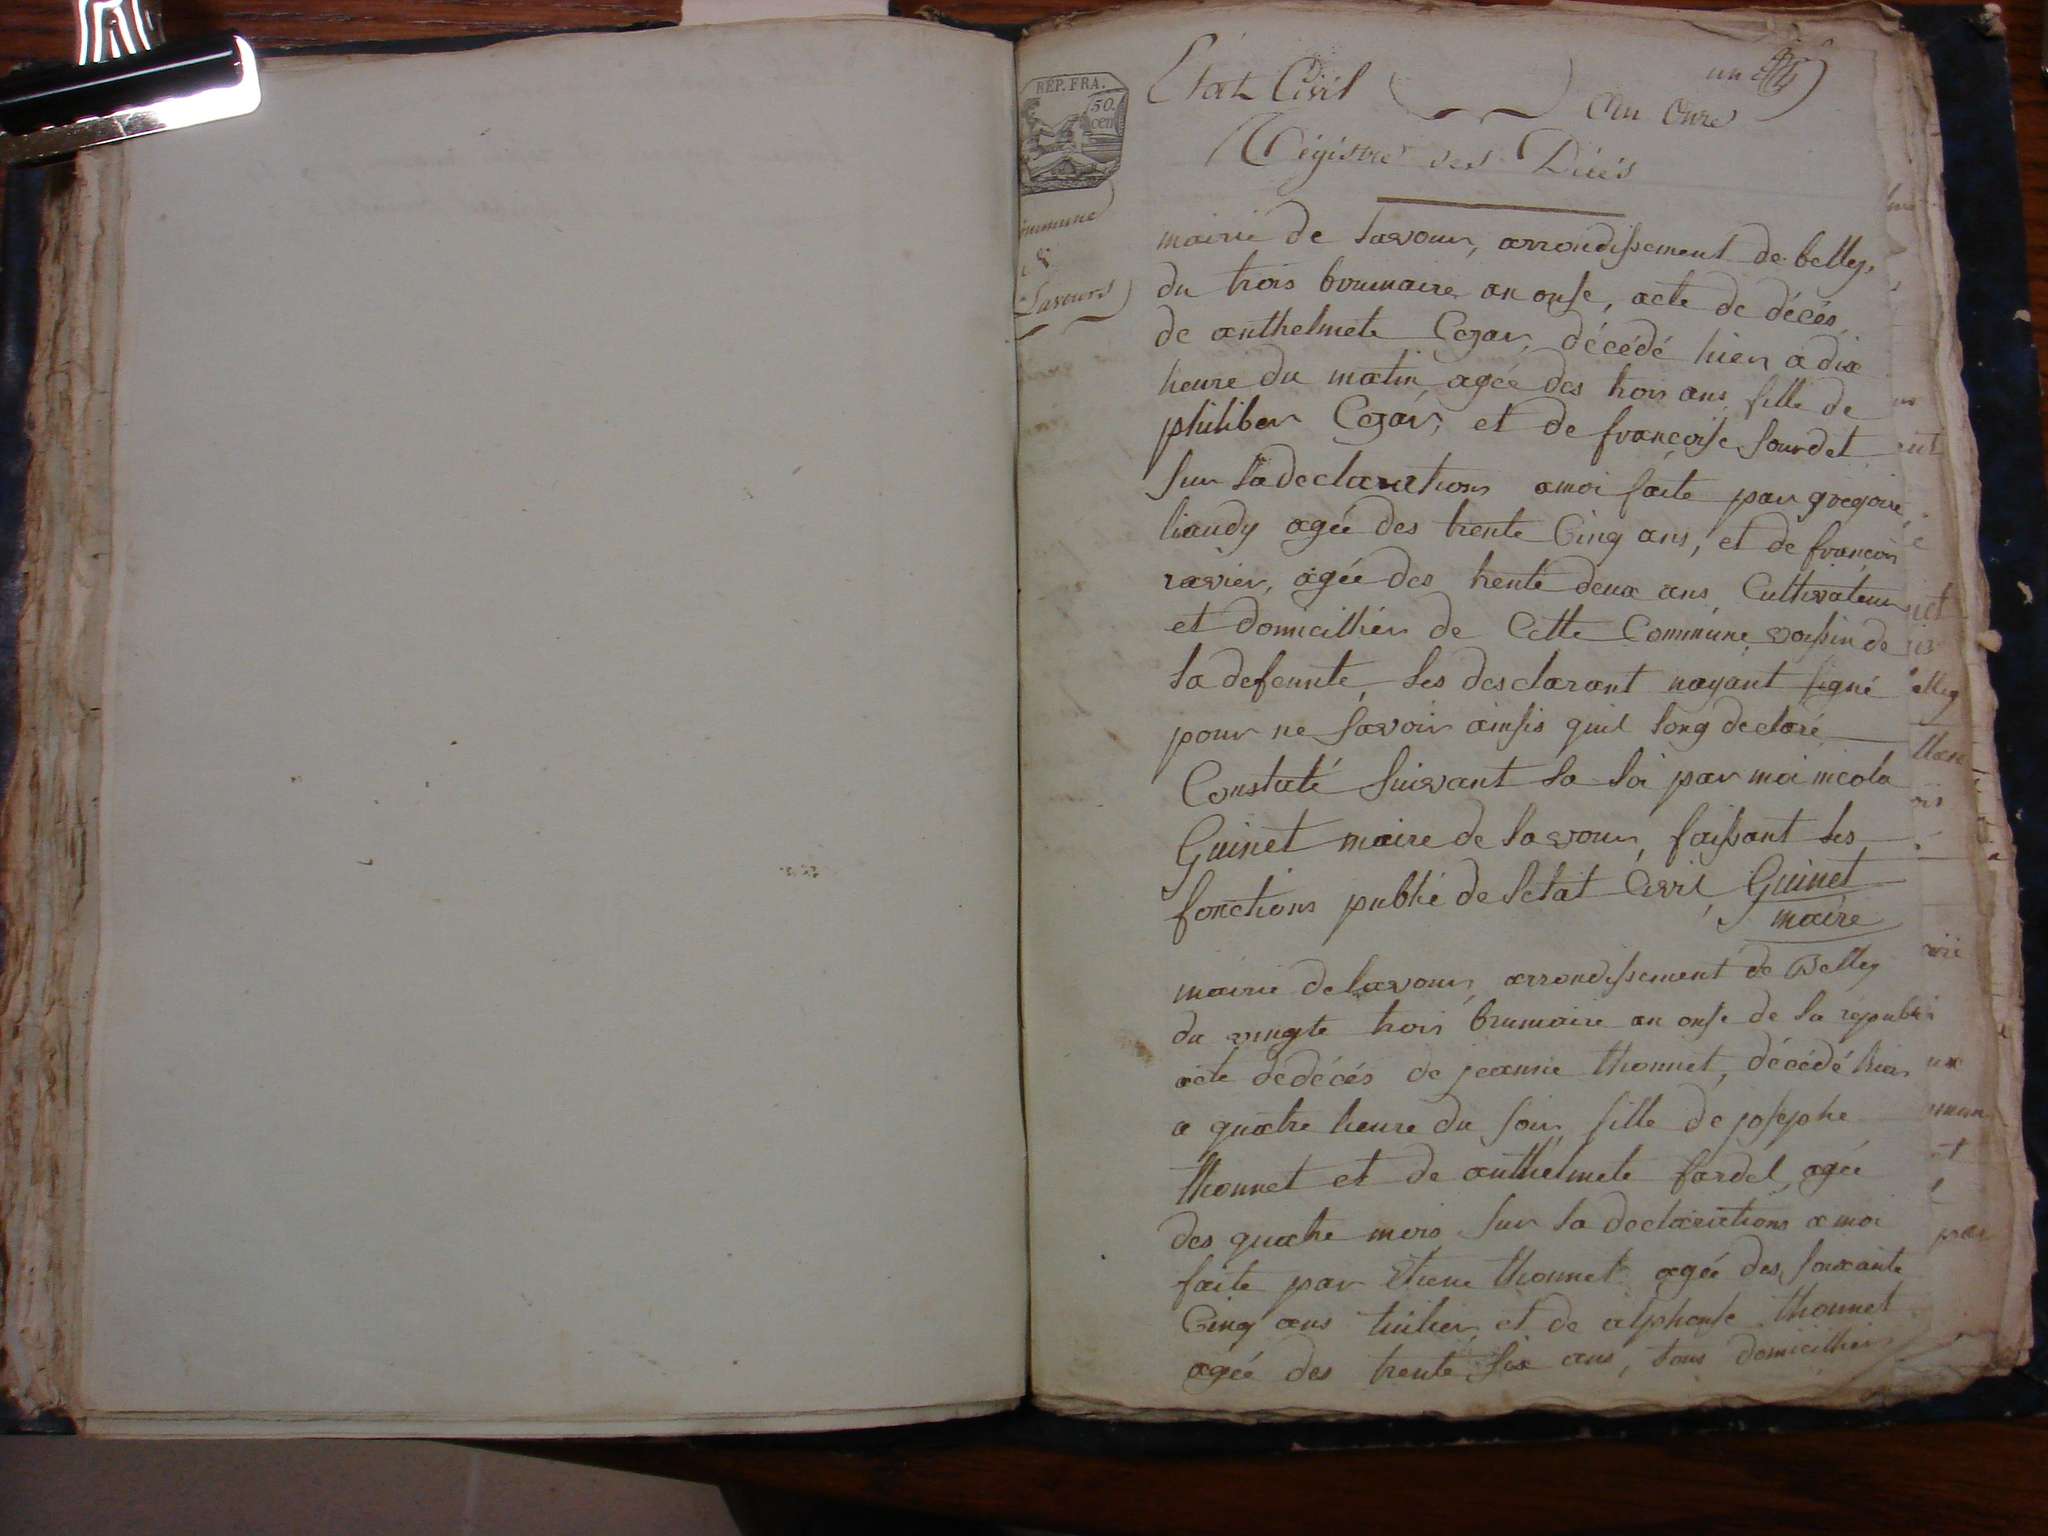 REP. FRA.
50.
cen
un
Etat Civil
An Onze
Régistre des Décés
ommune
de
Lavours
mairie de lavour, arrondissement de belley,
du trois brumaire an onse, acte de décés
de anthelmete Cezar, décédé hier a dix
heure du matin, agée des trois ans, fille de
philiber Cezar, et de francoise Sourdet
sur la declarations amoi faite par gregoire
liaudy agée des trente Cinq ans, et de francois
ravier, agée des trente deux ans, Cultivateur
et domicillier de Cette Commune, voisin de
la defeunte, les desclarant nayant signé
pour ne savoir ainsis quil song declaré
Constaté suivant la loi par moi nicola
Guinet maire de lavour, faissant les
fonctions publié de letat Civil, Guinet
maire
mairie delavour, arrondissement de Belley
du vingte trois brumaire an onse de la republi
acte dedécés de jeanne thonnet, décédé hier
a quatre heure du soir, fille de josephe
thonnet et de anthelmete fardel, agée
des quatre mois sur la declarations amoi
faite par Etiene thonnet agée des soixante
Cinq ans tuilier, et de alphonse thonnet
agée des trente six ans, tous domicillier